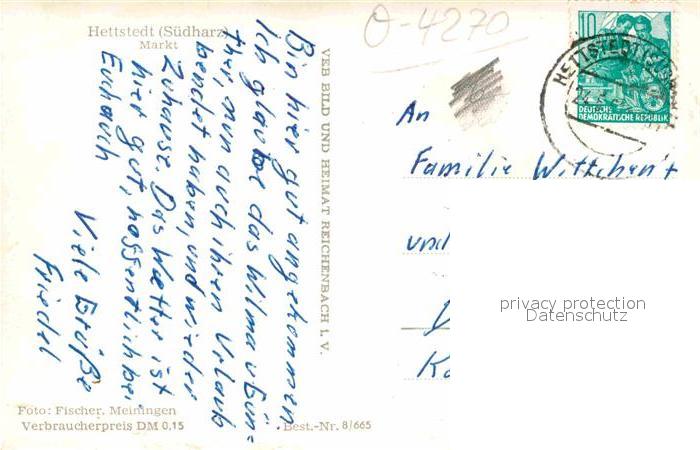 Hettstedt (Südharz)
Markt
Bin hier gut angekommen
Ich glaube das Wilma u Gün=
ther, nun auch ihren Urlaub
beendet haben, und wieder
Zuhause. Das Wetter ist
hier gut, hoffentlich bei
Euch auch
Viele Grüße
Friedel
Foto: Fischer, Meiningen
Verbraucherpreis DM 0,15
Best.-Nr. 8/665
VEB BILD UND HEIMAT REICHENBACH I. V.
O-4270
10
DEUTSCHE
DEMOKRATISCHE REPUBLIK
HETTSTEDT
An
Familie Wittchen't
und
privacy protection
Datenschutz